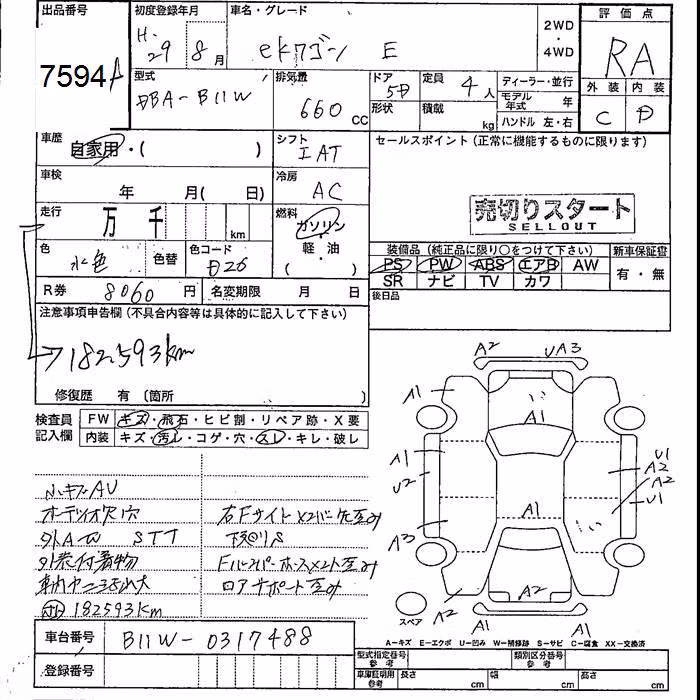 出品番号 初度登録年月 車名・グレード 評価点
7594A H. 29年 8月 eKワゴン E 2WD・4WD RA
型式 排気量 ドア 定員 ディーラー・並行 外装 内装
DBA-B11W 660cc 5D 4人 モデル年式 年 C D
形状 積載 kg ハンドル 左・右
車歴 シフト セールスポイント (正常に機能するものに限ります)
自家用・( ) IAT
車検 冷房
年 月( 日) AC
走行 燃料 売切りスタート
万 千 km ガソリン SELLOUT
軽・油
( )
色 色替 色コード 装備品 (純正品に限り○をつけて下さい) 新車保証書
水色 D26 PS PW ABS エアB AW 有・無
SR ナビ TV カワ
R券 8060円 名変期限 月 日 後日品
注意事項申告欄 (不具合内容等は具体的に記入して下さい)
182593km
修復歴 有 (箇所
検査員記入欄 FW キズ・飛石・ヒビ割・リペア跡・X要
内装 キズ・汚レ・コゲ・穴・スレ・キレ・破レ
A2 UA3
A1 A1
A1 U2 U1 A2 A2 U1
A3 A1
A2 A2 A1
A1
スペア
小キズAU
オーデリオ穴穴
外AW STT
外装付着物
182593km
下廻りS
A-キズ E-エクボ U-凹み W-補修跡 S-サビ C-腐食 XX-交換済
車台番号 B11W-0317488
登録番号
型式指定番号 参考 類別区分番号 参考
車庫証明用 参考 長さ cm 幅 cm 高さ cm